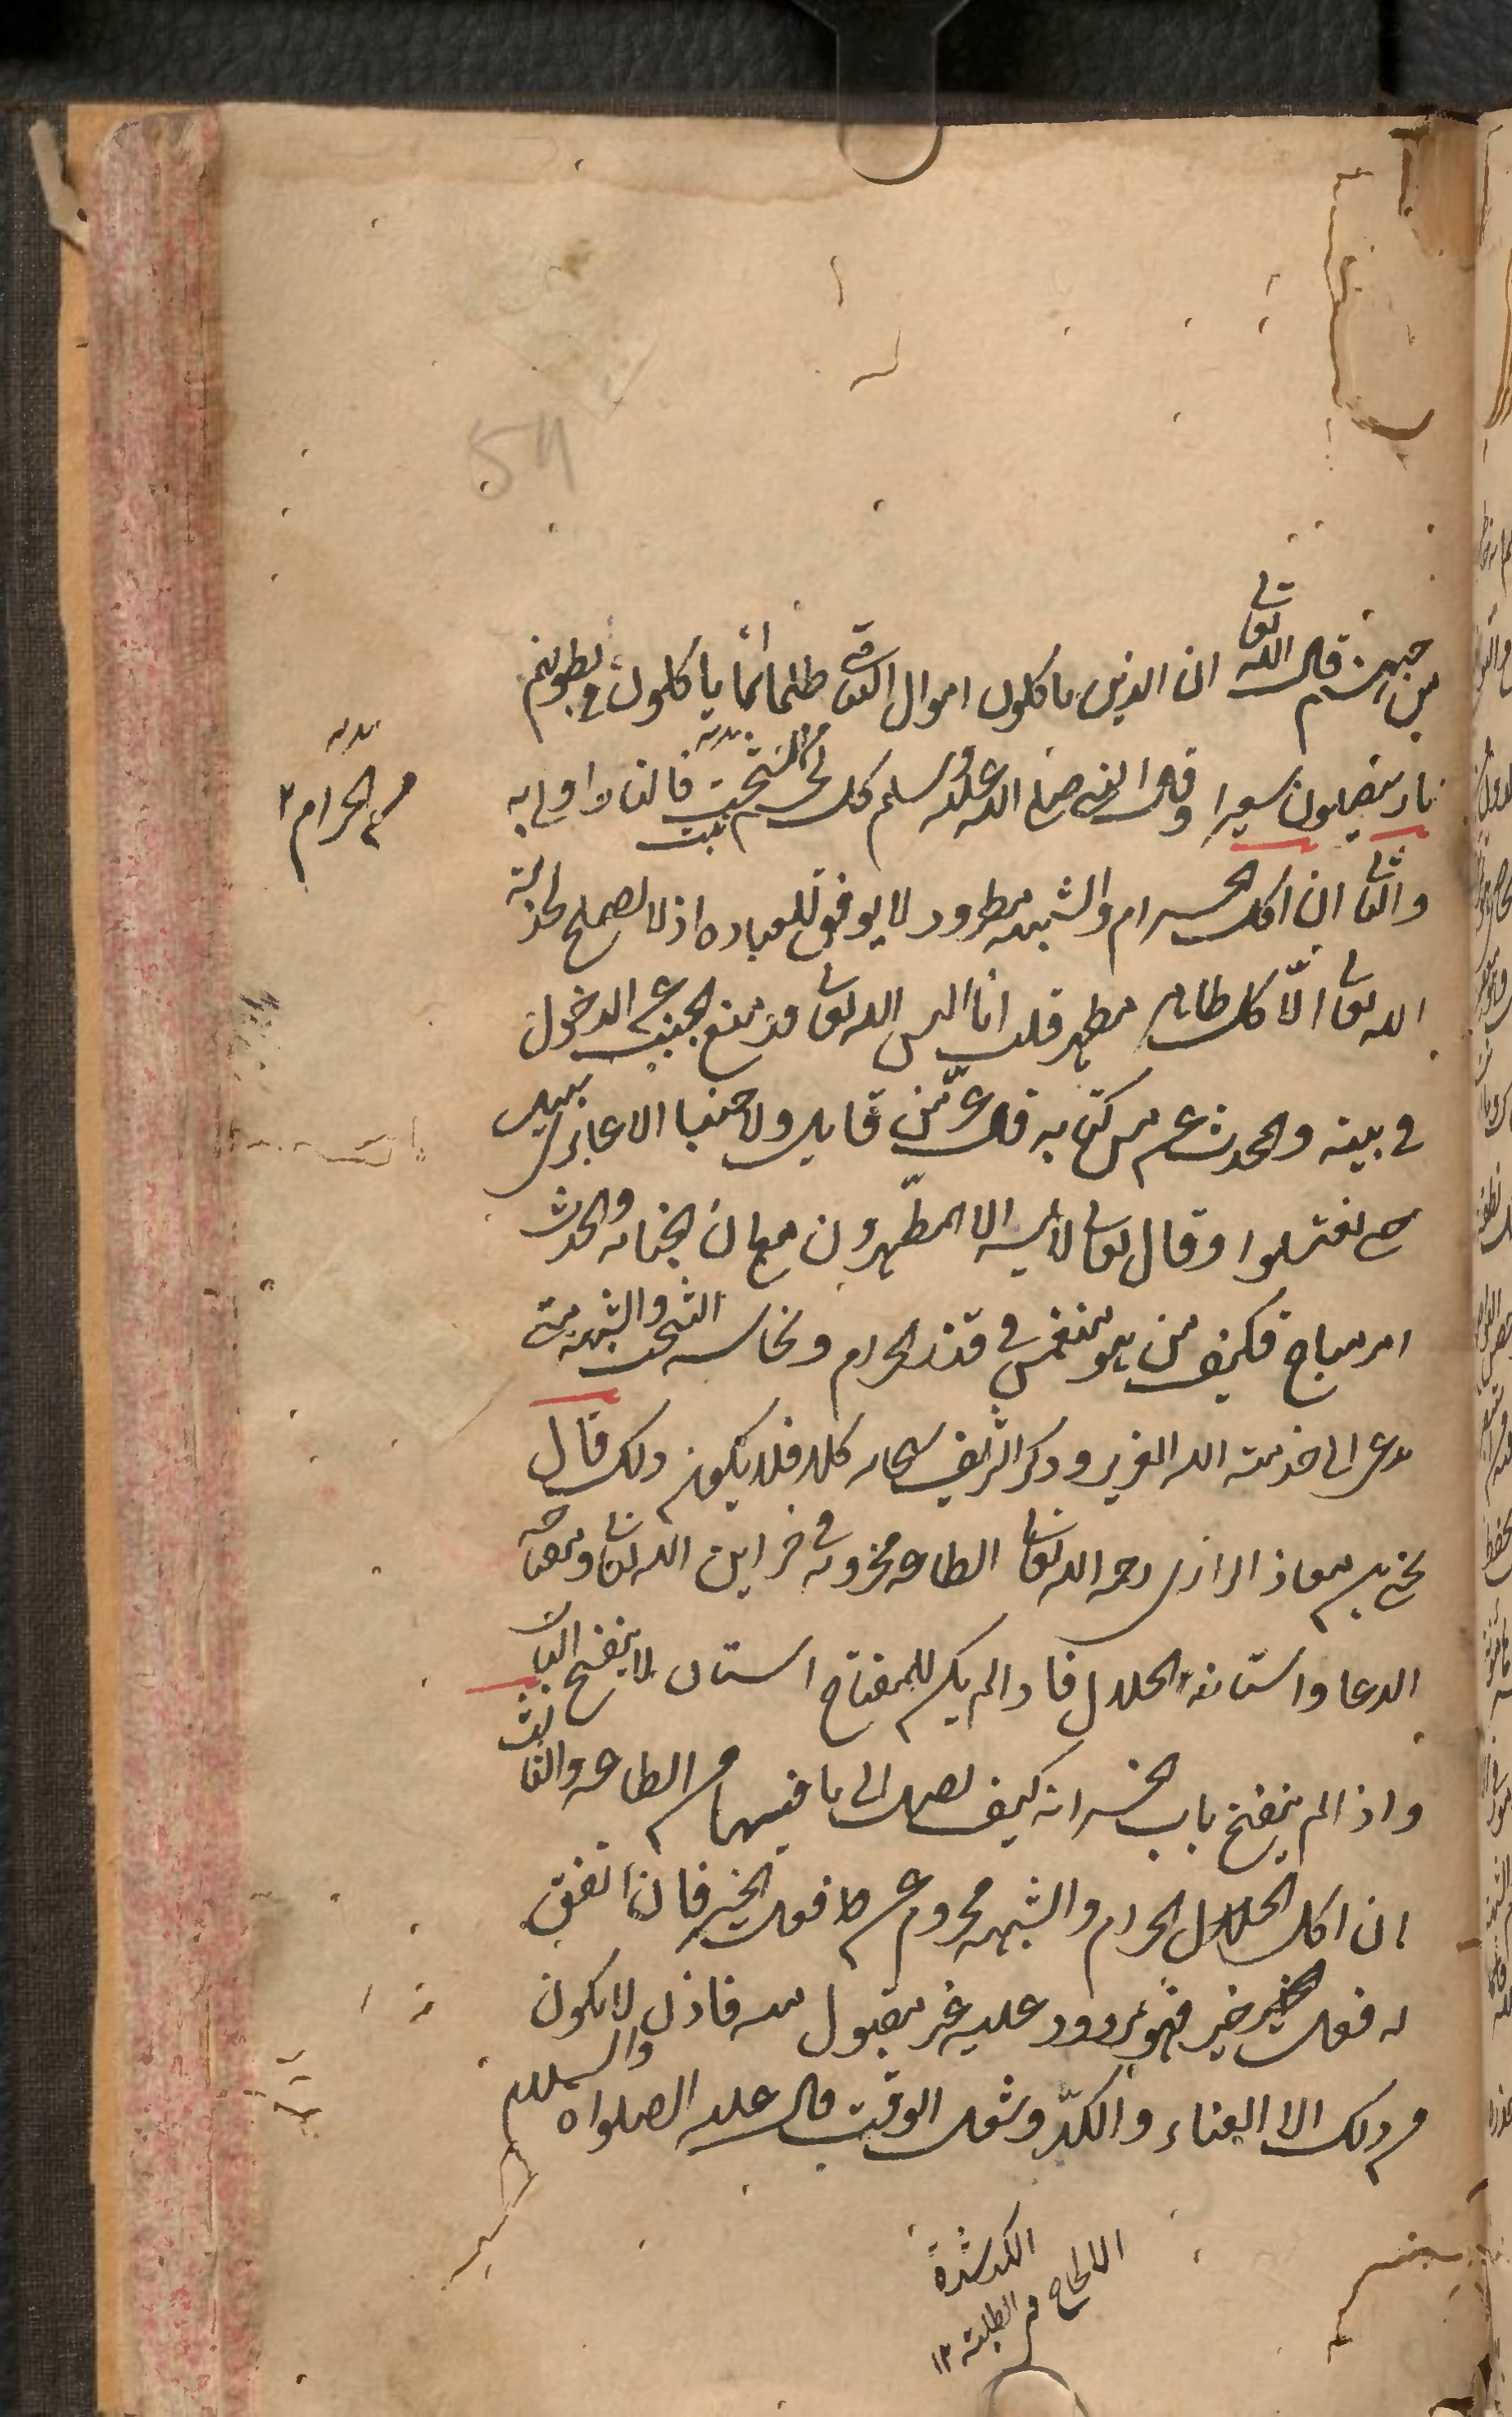 54
من جهنم قال الله تعالى ان الذين ياكلون اموال اليتامى ظلما انما ياكلون في بطونهم
نارا وسيصلون سعيرا وقال النبي صلى الله عليه وسلم كل لحم نبت من السحت فالنار اولى به
من الحرام ٢
والثاني ان اكل الحرام والشبهة مطرود لا يوفق للعباده اذ لا يصلح لخدمة
الله تعالى الا كل طاهر مطهر قلت انا اليس الله تعالى قد منع الجنب عن الدخول
في بيته والمحدث عن مس كتابه قال عز من قايل ولا جنبا الا عابرى سبيل
حتى تغتسلوا وقال تعالى لا يمسه الا المطهرون مع ان الجنابه والحدث
امر مباح فكيف من هو منغمس في قذر الحرام ونجاسه السحت والشبهة متى
يدعى الى خدمته الله العزيز وذكره الشريف سبحانه كلا فلا يكون ذلك قال
يحيى بن معاذ الرازى رحمه الله تعالى الطاعه مخزونه في خزاين الله تعالى ومفتاحه
الدعا واسنانه الحلال فاذا لم يكن للمفتاح اسنان لا ينفتح الباب
واذا لم ينفتح باب الخزانه كيف يصل الى ما فيها من الطاعه والثالث
ان اكل الحلال الحرام والشبهه محروم عن فعل الخير فان اتفق
له فعل خير فهو مردود عليه غير مقبول منه فاذن لا يكون
من ذلك الا العناء والكد وشغل الوقت قال عليه الصلواه والسلام
الكد شدة
الالحاح في الطلب ١٢